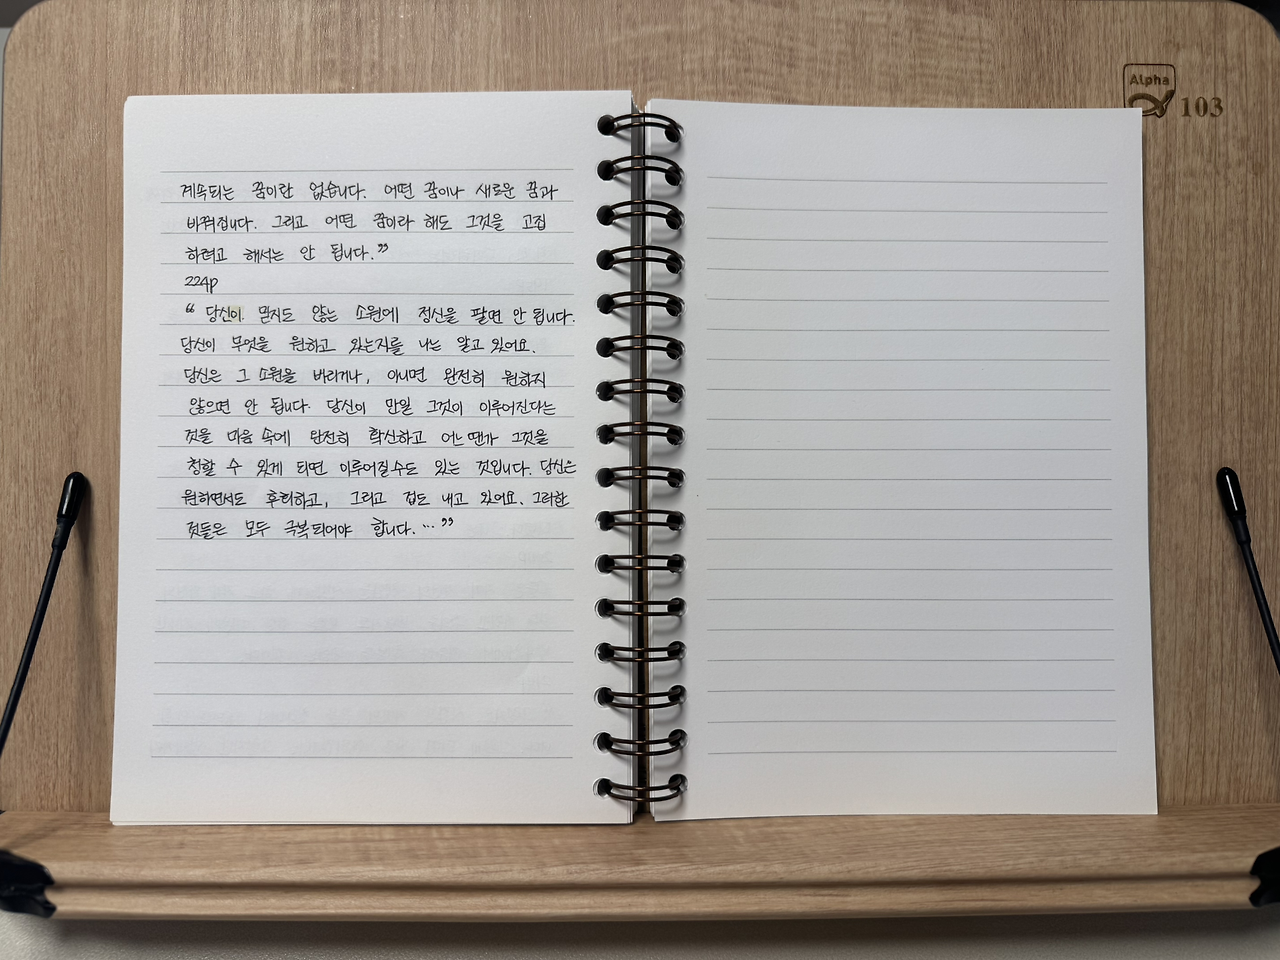 계속되는 꿈이란 없습니다. 어떤 꿈이나 새로운 꿈과
바뀌집니다. 그리고 어떤 꿈이라 해도 그것을 고집
하려고 해서는 안 됩니다.”
224p
“ 당신이 믿지도 않는 소원에 정신을 팔면 안 됩니다.
당신이 무엇을 원하고 있는지를 나는 알고 있어요.
당신은 그 소원을 버리거나, 아니면 완전히 원하지
않으면 안 됩니다. 당신이 만일 그것이 이루어진다는
것을 마음 속에 완전히 확신하고 어느 땐가 그것을
청할 수 있게 되면 이루어질 수도 있는 것입니다. 당신은
원하면서도 후회하고, 그리고 겁도 내고 있어요. 그러한
것들은 모두 극복되어야 합니다. … ”
Alpha
103